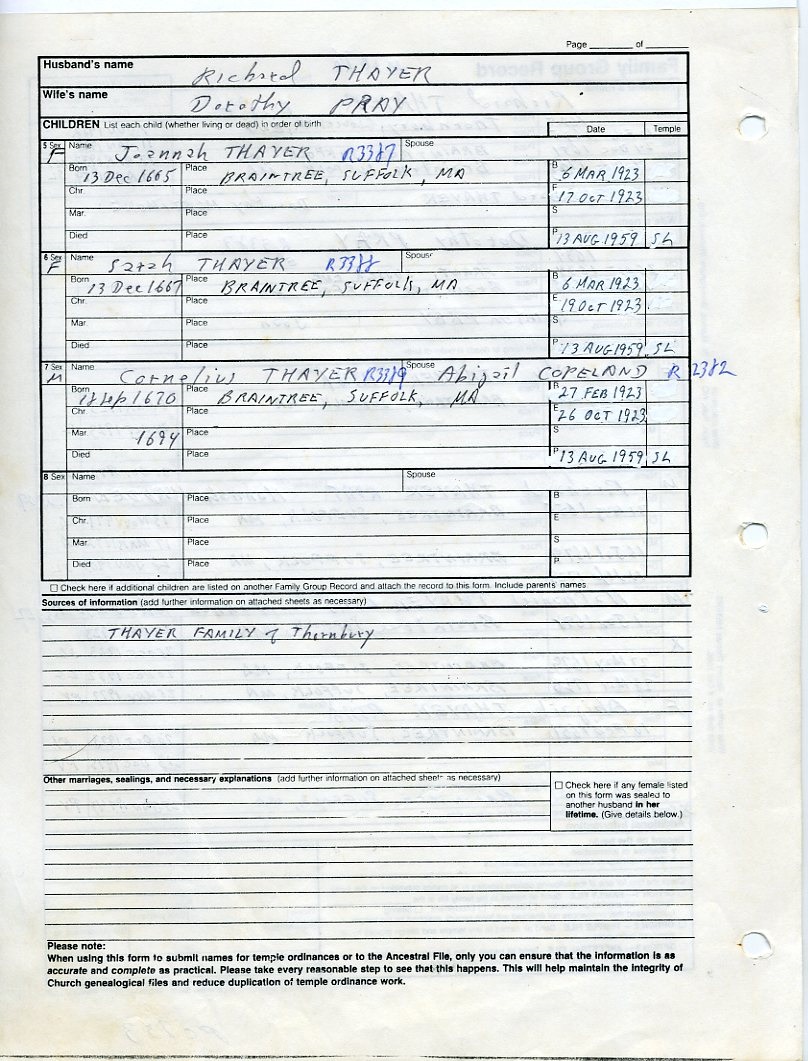 Page ____ of ____
Husband's name Richard THAYER
Wife's name Dorothy PRAY
CHILDREN List each child (whether living or dead) in order of birth Date Temple
5 Sex F Name Joannah THAYER R3387 Spouse
Born 13 Dec 1665 Place BRAINTREE, SUFFOLK, MA B 6 MAR 1923
Chr. Place E 17 OCT 1923
Mar. Place S
Died Place P 13 AUG 1959 SL
6 Sex F Name Sarah THAYER R3388 Spouse
Born 13 Dec 1667 Place BRAINTREE, SUFFOLK, MA B 6 MAR 1923
Chr. Place E 19 OCT 1923
Mar. Place S
Died Place P 13 AUG 1959 SL
7 Sex M Name Cornelius THAYER R3389 Spouse Abigail COPELAND R 2382
Born 18 Sep 1670 Place BRAINTREE, SUFFOLK, MA B 27 FEB 1923
Chr. Place E 26 OCT 1923
Mar. 1694 Place S
Died Place P 13 AUG 1959 SL
8 Sex Name Spouse
Born Place B
Chr. Place E
Mar. Place S
Died Place P
☐ Check here if additional children are listed on another Family Group Record and attach the record to this form. Include parents' names.
Sources of information (add further information on attached sheets as necessary)
THAYER FAMILY of Thornbury
Other marriages, sealings, and necessary explanations (add further information on attached sheets as necessary)
☐ Check here if any female listed
on this form was sealed to
another husband in her
lifetime. (Give details below.)
Please note:
When using this form to submit names for temple ordinances or to the Ancestral File, only you can ensure that the information is as
accurate and complete as practical. Please take every reasonable step to see that this happens. This will help maintain the integrity of
Church genealogical files and reduce duplication of temple ordinance work.